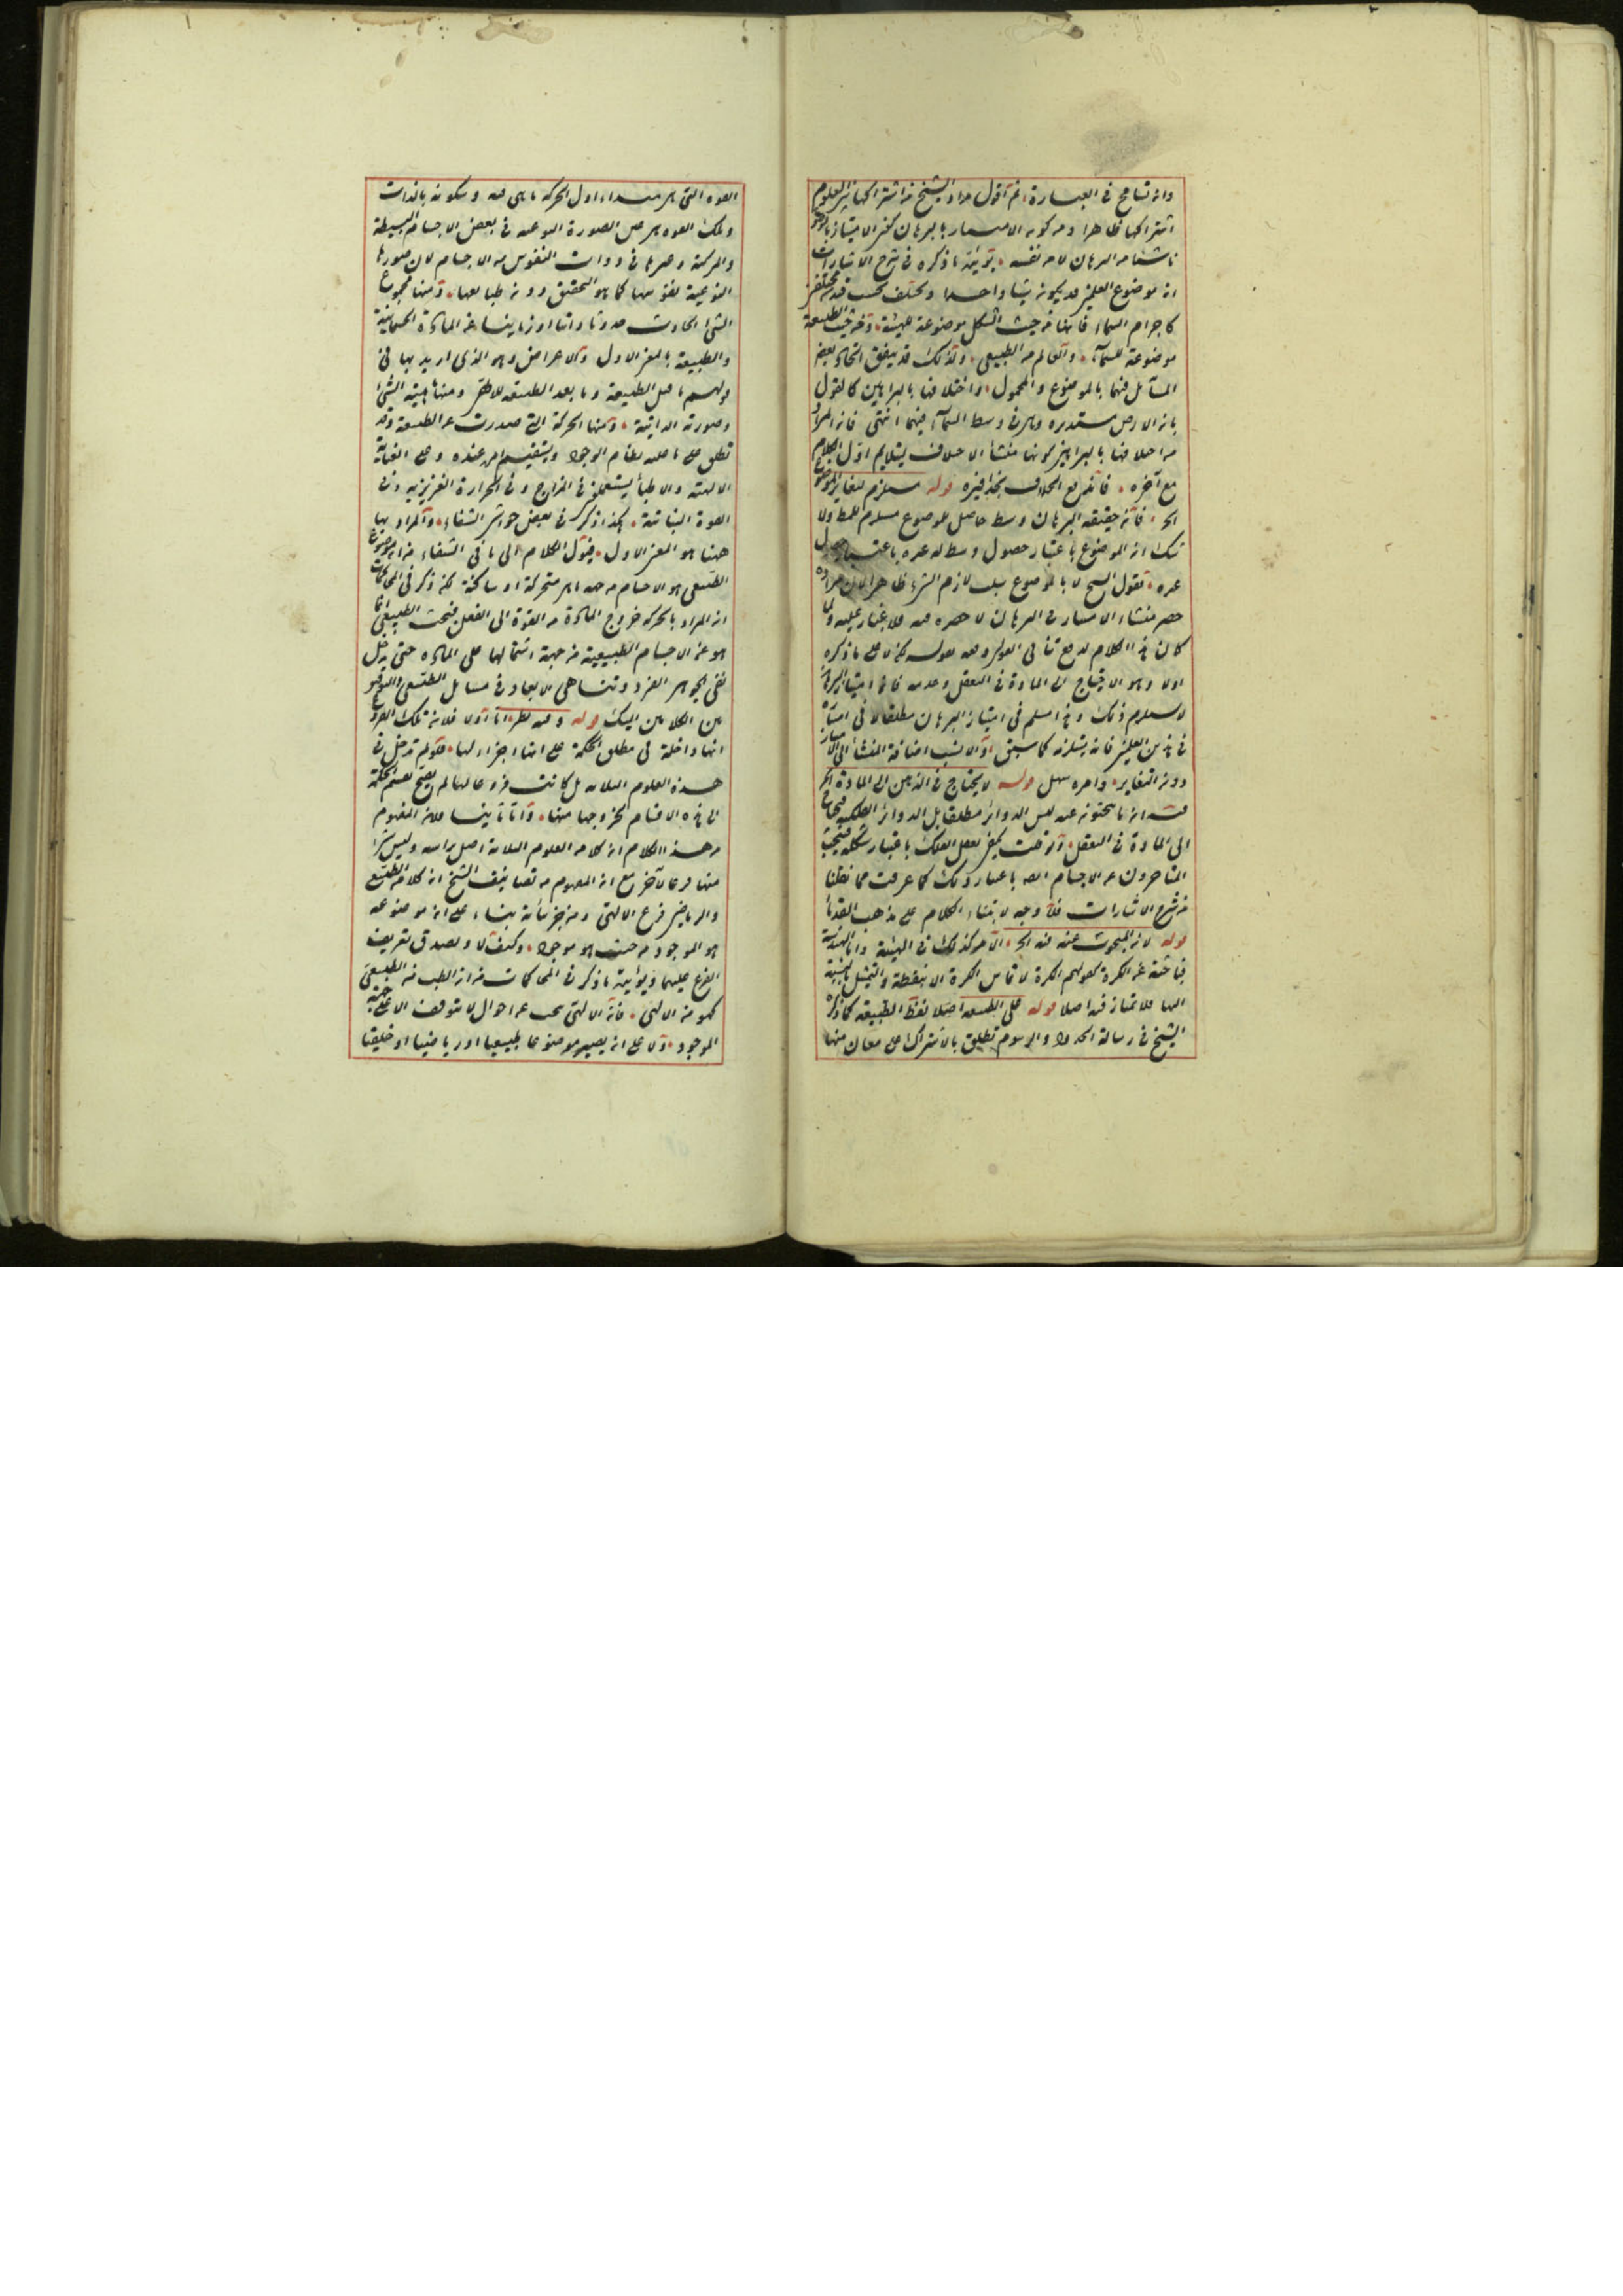 وانه تسامح في العبارة ثم اقول مراد الشيخ من اشتراكها بين العلوم
اشتراكها ظاهرا ومن كونه الامتياز بالبرهان كون الامتياز
ناشئا من البرهان لا من نفسه يؤيده ما ذكره في شرح الاشارات
ان موضوع العلمين قد يكون شيئا واحدا ويختلف بحسب قيدين مختلفين
كاجرام السماء فانها من حيث الشكل موضوعة للهيئة ومن حيث الطبيعة
موضوعة للسماء والعالم من الطبيعي ولذلك قد يتفق اتحاد بعض
المسائل فيهما بالموضوع والمحمول واختلافها بالبراهين كالقول
بان الارض مستديرة وهي في وسط السماء فيهما انتهى فان المراد
من اختلافها بالبراهين كونها منشأ الاختلاف ليتلايم اول الكلام
مع آخره فاندفع الخلاف بحذافيره قوله مستلزم لتغاير الموضوع
الخ فان حقيقة البرهان وسط حاصل للموضوع مستلزم للمط ولا
شك ان الموضوع باعتبار حصول وسط له غيره باعتبار حصول
غيره نقول الشيخ لا بالموضوع سلب لازم الشيء ظاهرا لان مراده
حصر منشاء الامتياز في البرهان لا حصره فيه فلا غبار عليه ولما
كان هذا الكلام لدفع تنافي القولين دفعه بقوله لكن لا على ما ذكره
اولا وهو الاحتياج الى المادة في التعقل وعدمه فان امتياز البرهان
لا يستلزم ذلك وهذا مسلم في امتياز البرهان مطلقا لا في امتيازه
في هذين العلمين فانه يستلزمه كما سبق والانسب اضافة المنشأ الى الامتياز
دون التغاير وامره سهل قوله لا يحتاج في الذهن الى المادة الخ
فيه ان ما يبحثون عنه ليس الدوائر مطلقا بل الدوائر الفلكية
الى المادة في التعقل وقد عرفت يمكن تعقل الفلك باعتبار شكله فيبحث
المتأخرون عن الاجسام ايضا باعتبار ذلك كما عرفت مما نقلنا
من شرح الاشارات فلا وجه لابتناء الكلام على مذهب القدماء
قوله لان المبحوث عنه فيه الخ الامر كذلك في الهيئة واما الهندسة
فباحثة عن الكرة كقولهم الكرة لا تماس الكرة الا بنقطة والتمثيل بالنسبة
اليها فلا تمتاز فيه اصلا قوله على الطبيعة اصلا لفظ الطبيعة كما ذكره
الشيخ في رسالة الحدود والرسوم تطلق بالاشتراك على معان منها
القوة التي هي مبداء اول لحركة ما هي فيه وسكونه بالذات
وتلك القوة هي عين الصورة النوعية في بعض الاجسام البسيطة
والمركبة وغيرها في ذوات النفوس من الاجسام لان صورها
النوعية نفوسها كما هو التحقيق دون طبايعها ومنها مجموع
الشيء الحادث حدوثا ذاتيا او زمانيا عن المادة الجسمانية
والطبيعة بالمعنى الاول والاعراض وهو الذي اريد بها في
قولهم ما قبل الطبيعة وما بعد الطبيعة ومنها مهية الشيء
وصورته الذاتية ومنها الحركة التي صدرت عن الطبيعة وقد
تطلق على ما عليه نظام الوجود ويستقيم امر عنده وعلى العناية
الالهية والاطباء يستعملونه في المزاج وفي الحرارة الغريزية وفي
القوة النباتية كذا ذكر في بعض حواشي الشفاء والمراد بها
ههنا هو المعنى الاول فيؤل الكلام الى ما في الشفاء من ان موضوع
الطبيعي هو الاجسام من جهة ما هي متحركة او ساكنة لكن ذكر في المحاكمات
ان المراد بالحركة خروج المادة من القوة الى الفعل فبحث الطبيعي انما
هو عن الاجسام الطبيعية من جهة اشتمالها على المادة حتى يدخل
نفي الجوهر الفرد وتناهي الابعاد في مسايل الطبيعي والتوفيق
بين الكلامين اليك قوله وفيه نظر اما اولا فلان تلك الفروع
انها داخلة في مطلق الحكمة على انها اجزاء لها فلو لم تدخل في
هذه العلوم الثلاثة بل كانت فروعا لها لم يصح تقسيم الحكمة
الى هذه الاقسام لخروجها عنها واما ثانيا فلان المفهوم
من هذا الكلام ان كلا من العلوم الثلاثة اصل براسه وليس شيء
منها فرعا لآخر مع ان المفهوم من تصانيف الشيخ ان كلا من الطبيعي
والرياضي فرع الالهي ومن جزئياته بناء على ان موضوعه
هو الموجود من حيث هو موجود وكيف لا ويصدق تعريف
الفرع عليهما ويؤيده ما ذكر في المحاكمات من ان الطب من الطبيعي
كهو من الالهي فان الالهي يبحث عن احوال لا تتوقف الا على حيثية
الموجود ولا على انه يصير موضوعا طبيعيا او رياضيا او خليقا